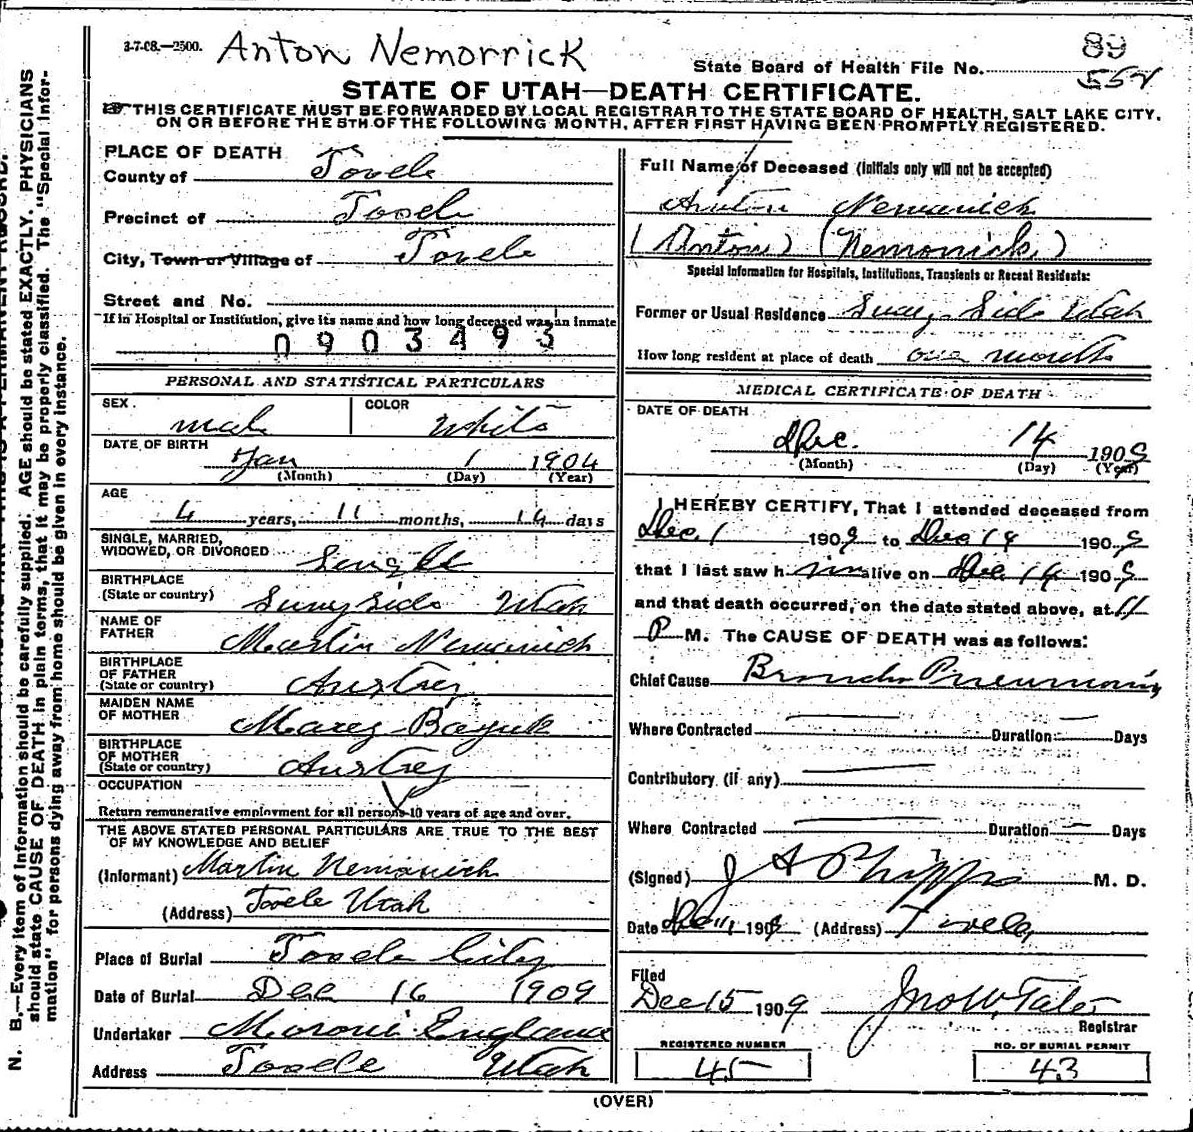 3-7-08.—2500. Anton Nemorrick
State Board of Health File No. 89
552
STATE OF UTAH—DEATH CERTIFICATE.
THIS CERTIFICATE MUST BE FORWARDED BY LOCAL REGISTRAR TO THE STATE BOARD OF HEALTH, SALT LAKE CITY,
ON OR BEFORE THE 5TH OF THE FOLLOWING MONTH, AFTER FIRST HAVING BEEN PROMPTLY REGISTERED.
PLACE OF DEATH
County of Tooele
Precinct of Tooele
City, Town or Village of Tooele
Street and No.
If in Hospital or Institution, give its name and how long deceased was an inmate
0903493
PERSONAL AND STATISTICAL PARTICULARS
SEX. male COLOR White
DATE OF BIRTH
Jan 1 1904
(Month) (Day) (Year)
AGE
4 years, 11 months, 14 days
SINGLE, MARRIED,
WIDOWED, OR DIVORCED Single
BIRTHPLACE
(State or country) Sunyside Utah
NAME OF
FATHER Martin Nemanich
BIRTHPLACE
OF FATHER
(State or country) Austrey
MAIDEN NAME
OF MOTHER Marey Bayuk
BIRTHPLACE
OF MOTHER
(State or country) Austrey
OCCUPATION
Return remunerative employment for all persons 10 years of age and over.
THE ABOVE STATED PERSONAL PARTICULARS ARE TRUE TO THE BEST
OF MY KNOWLEDGE AND BELIEF
(Informant) Martin Nemanich
(Address) Tooele Utah
Place of Burial Tooele City
Date of Burial Dec 16 1909
Undertaker Moroni England
Address Tooele Utah
Full Name of Deceased (initials only will not be accepted)
Anton Nemanich
(Anton) (Nemonick)
Special Information for Hospitals, Institutions, Transients or Recent Residents:
Former or Usual Residence Suny Side Utah
How long resident at place of death one month
MEDICAL CERTIFICATE OF DEATH
DATE OF DEATH
Dec. 14 1909
(Month) (Day) (Year)
I HEREBY CERTIFY, That I attended deceased from
Dec 1 1909 to Dec 14 1909
that I last saw him alive on Dec 14 1909
and that death occurred, on the date stated above, at 11
P M. The CAUSE OF DEATH was as follows:
Chief Cause Broncho Pneumonia
Where Contracted Duration Days
Contributory (if any)
Where Contracted Duration Days
(Signed) J A Phipps M. D.
Date Dec 1909 (Address) Tooele
Filed
Dec 15 1909 Jno W. Tate
Registrar
REGISTERED NUMBER NO. OF BURIAL PERMIT
45 43
(OVER)
N. B.—Every item of information should be carefully supplied. AGE should be stated EXACTLY. PHYSICIANS
should state CAUSE OF DEATH in plain terms, that it may be properly classified. The "Special Infor-
mation" for persons dying away from home should be given in every instance.